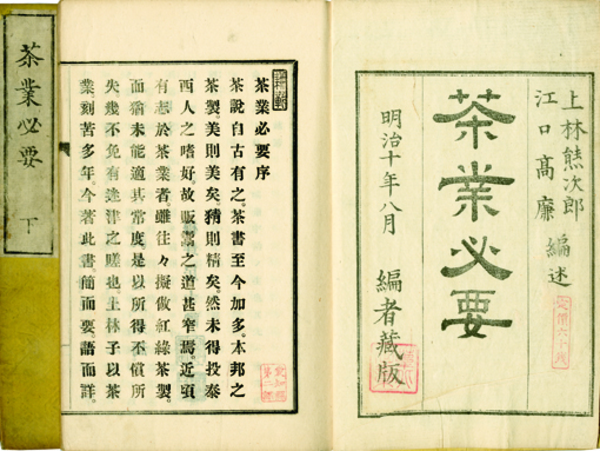 上林熊次郎
江口高廉 編述
茶業必要
明治十年八月 編者藏版
茶業必要序
茶說自古有之。茶書至今加多。本邦之
茶製。美則美矣。精則精矣。然未得投泰
西人之嗜好。故販鬻之道甚窄焉。近頃
有志於茶業者。雖往々擬倣紅綠茶製。
而猶未能適其常度。是以所得不償所
失。幾不免有迷津之嗟也。上林子以茶
業刻苦多年。今著此書。簡而要。語而詳。
茶業必要 下